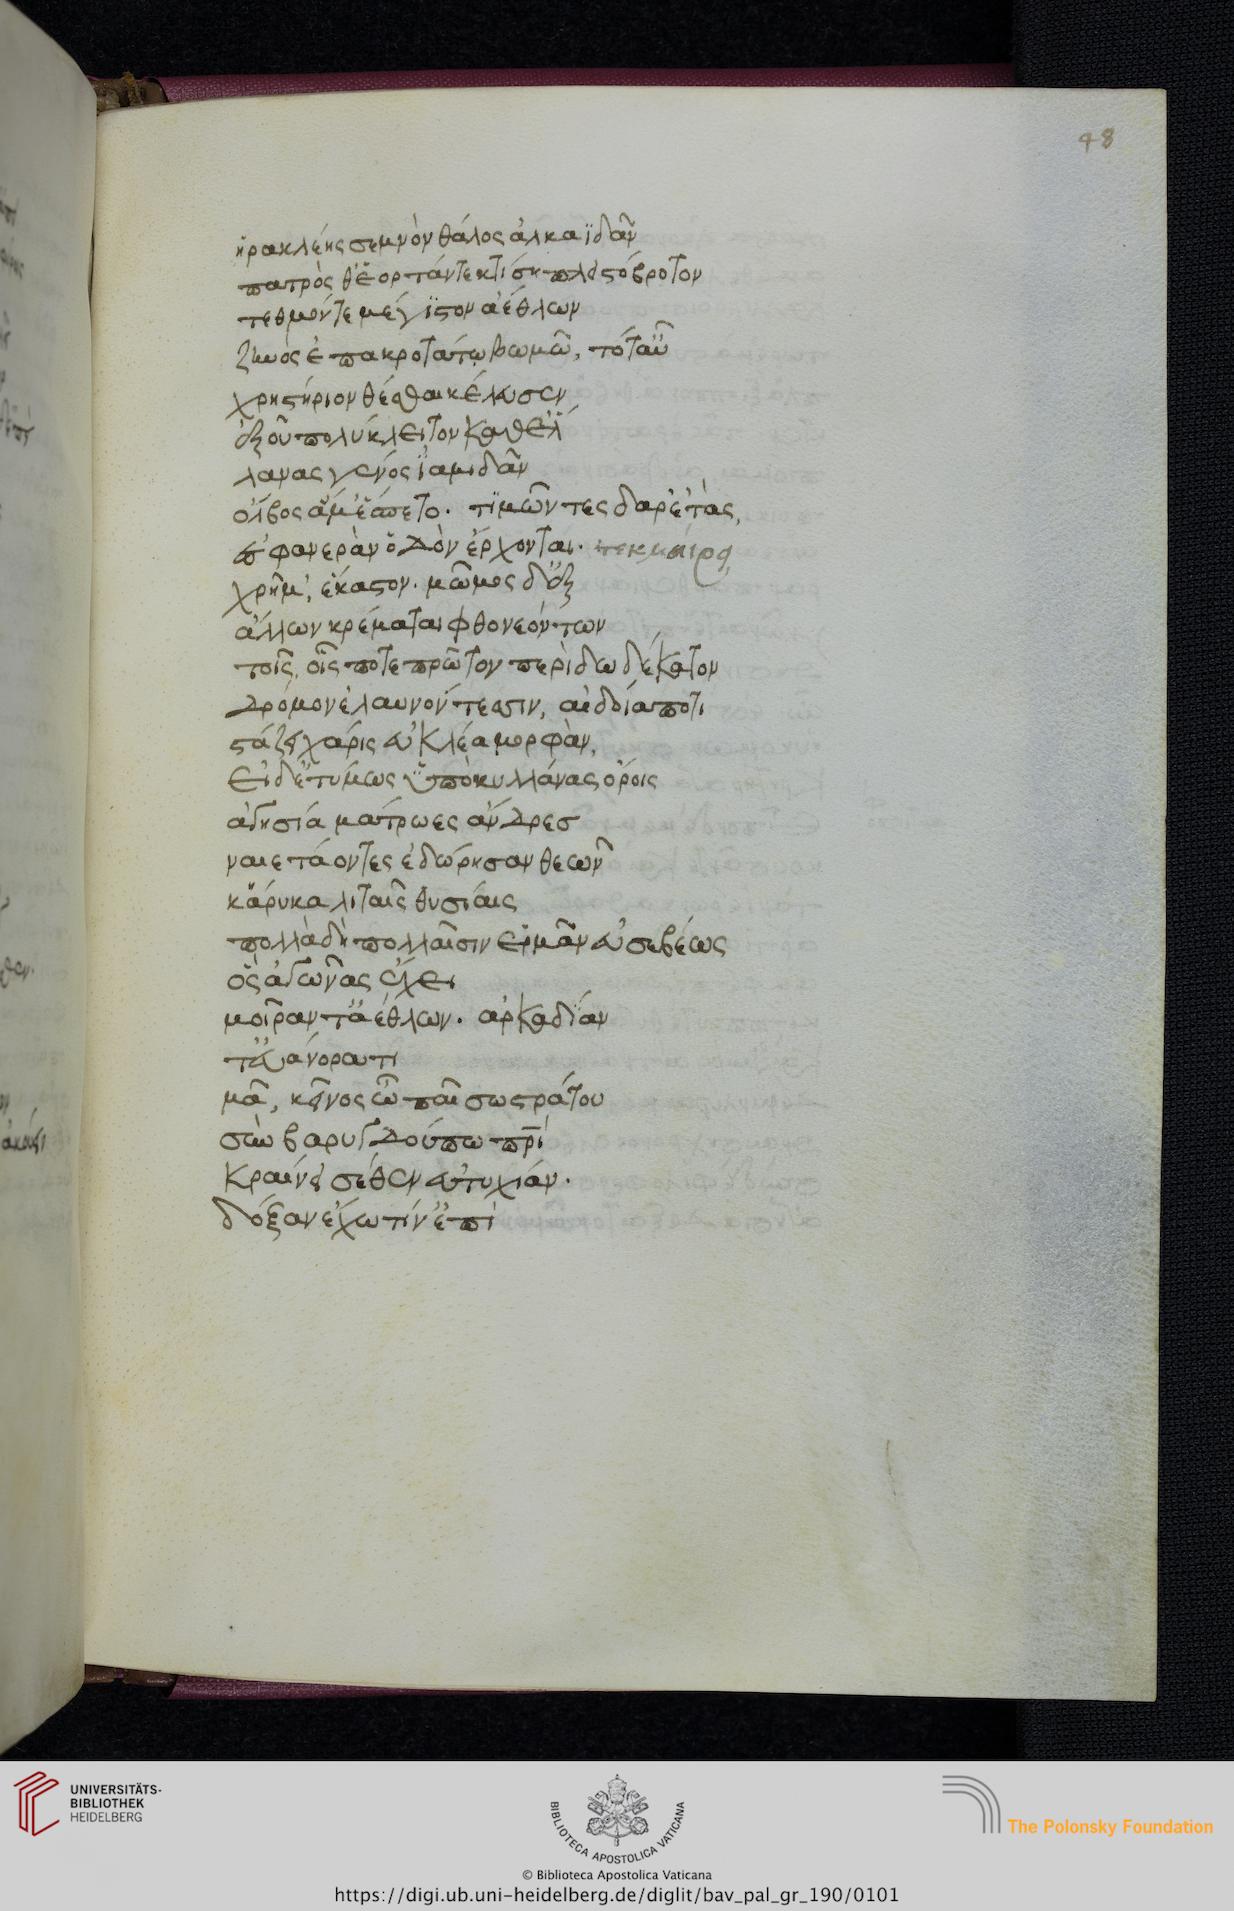 48
ἡρακλέης σεμνὸν θάλος ἀλκαϊδᾶν
πατρὸς θ' ἑορτάν τε κτίση πλειστόβροτον
τεθμόν τε μέγιστον ἀέθλων
ζηνὸς ἐπ ἀκροτάτῳ βωμῶ, τότ' αὖ
χρηστήριον θέσθαι κέλευσεν
ἐξ οὗ πολύκλειτον καθ' ἑλ
λανας γένος ἰαμιδᾶν
ὄλβος ἅμ' ἕσπετο. τιμῶντες δ' ἀρετὰς,
ἐς φανερὰν ὁδὸν ἔρχονται. τεκμαίρει
χρῆμ', ἕκαστον. μῶμος δ' ἐξ
ἄλλων κρέμαται φθονεόντων
τοῖς, οἷς ποτε πρῶτον περὶ δωδέκατον
δρόμον ἐλαυνόντεσσιν, αἰδοία ποτι
στάζει χάρις εὐκλέα μορφὰν,
εἰ δ' ἐτύμως ὑπὸ κυλλάνας ὄροις
ἁγησία μάτρωες ἄνδρες
ναιετάοντες ἐδώρησαν θεῶν
κάρυκα λιταῖς θυσίαις
πολλὰ δὴ πολλαῖσιν ἑρμᾶν εὐσεβέως
ὃς ἀγῶνας ἔχει
μοῖράν τ' ἀέθλων. ἀρκαδίαν
τ' εὐάνορα τι
μᾶ, κεῖνος ὦ παῖ σωστράτου
σὺν βαρυγδούπω πρὶ
κραίνει σέθεν εὐτυχίαν.
δόξαν ἔχω τίν' ἐπὶ
UNIVERSITÄTS-
BIBLIOTHEK
HEIDELBERG
BIBLIOTECA APOSTOLICA VATICANA
The Polonsky Foundation
© Biblioteca Apostolica Vaticana
https://digi.ub.uni-heidelberg.de/diglit/bav_pal_gr_190/0101